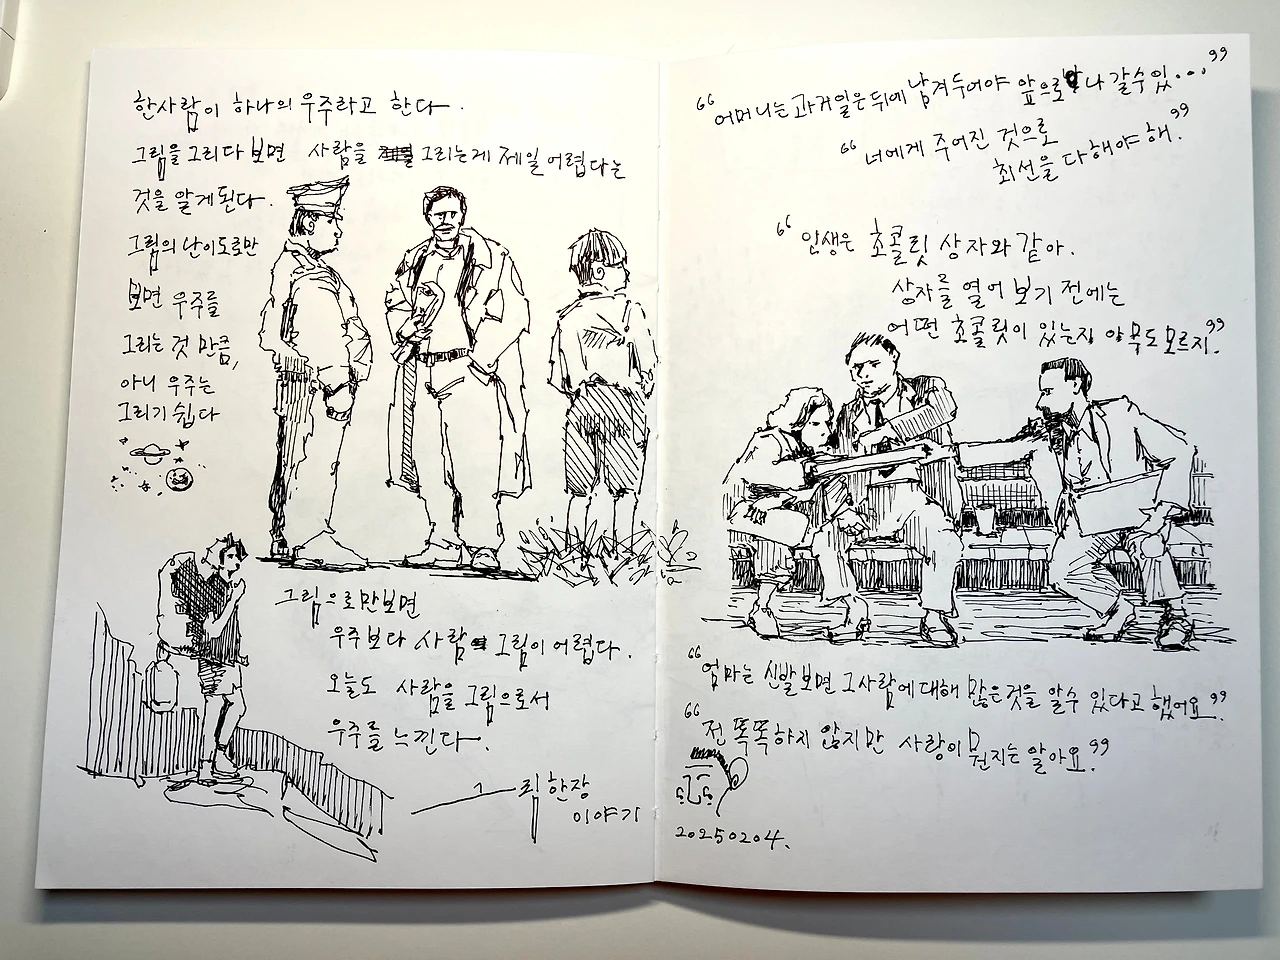 한사람이 하나의 우주라고 한다.
그림을 그리다 보면 사람을 그리는게 제일 어렵다는
것을 알게된다.
그림의 난이도로만
보면 우주를
그리는 것 만큼,
아니 우주는
그리기 쉽다
그림으로만보면
우주보다 사람 그림이 어렵다.
오늘도 사람을 그림으로서
우주를 느낀다.
그림 한장
이야기
"어머니는 과거일은 뒤에 남겨두어야 앞으로 나 갈수있..."
"너에게 주어진 것으로
최선을 다해야 해."
"인생은 초콜릿 상자와 같아.
상자를 열어 보기 전에는
어떤 초콜릿이 있는지 아무도 모르지."
"엄마는 신발보면 그사람에 대해 많은것을 알수 있다고 했어요."
"전 똑똑하지 않지만 사랑이 뭔지는 알아요."
20250204.